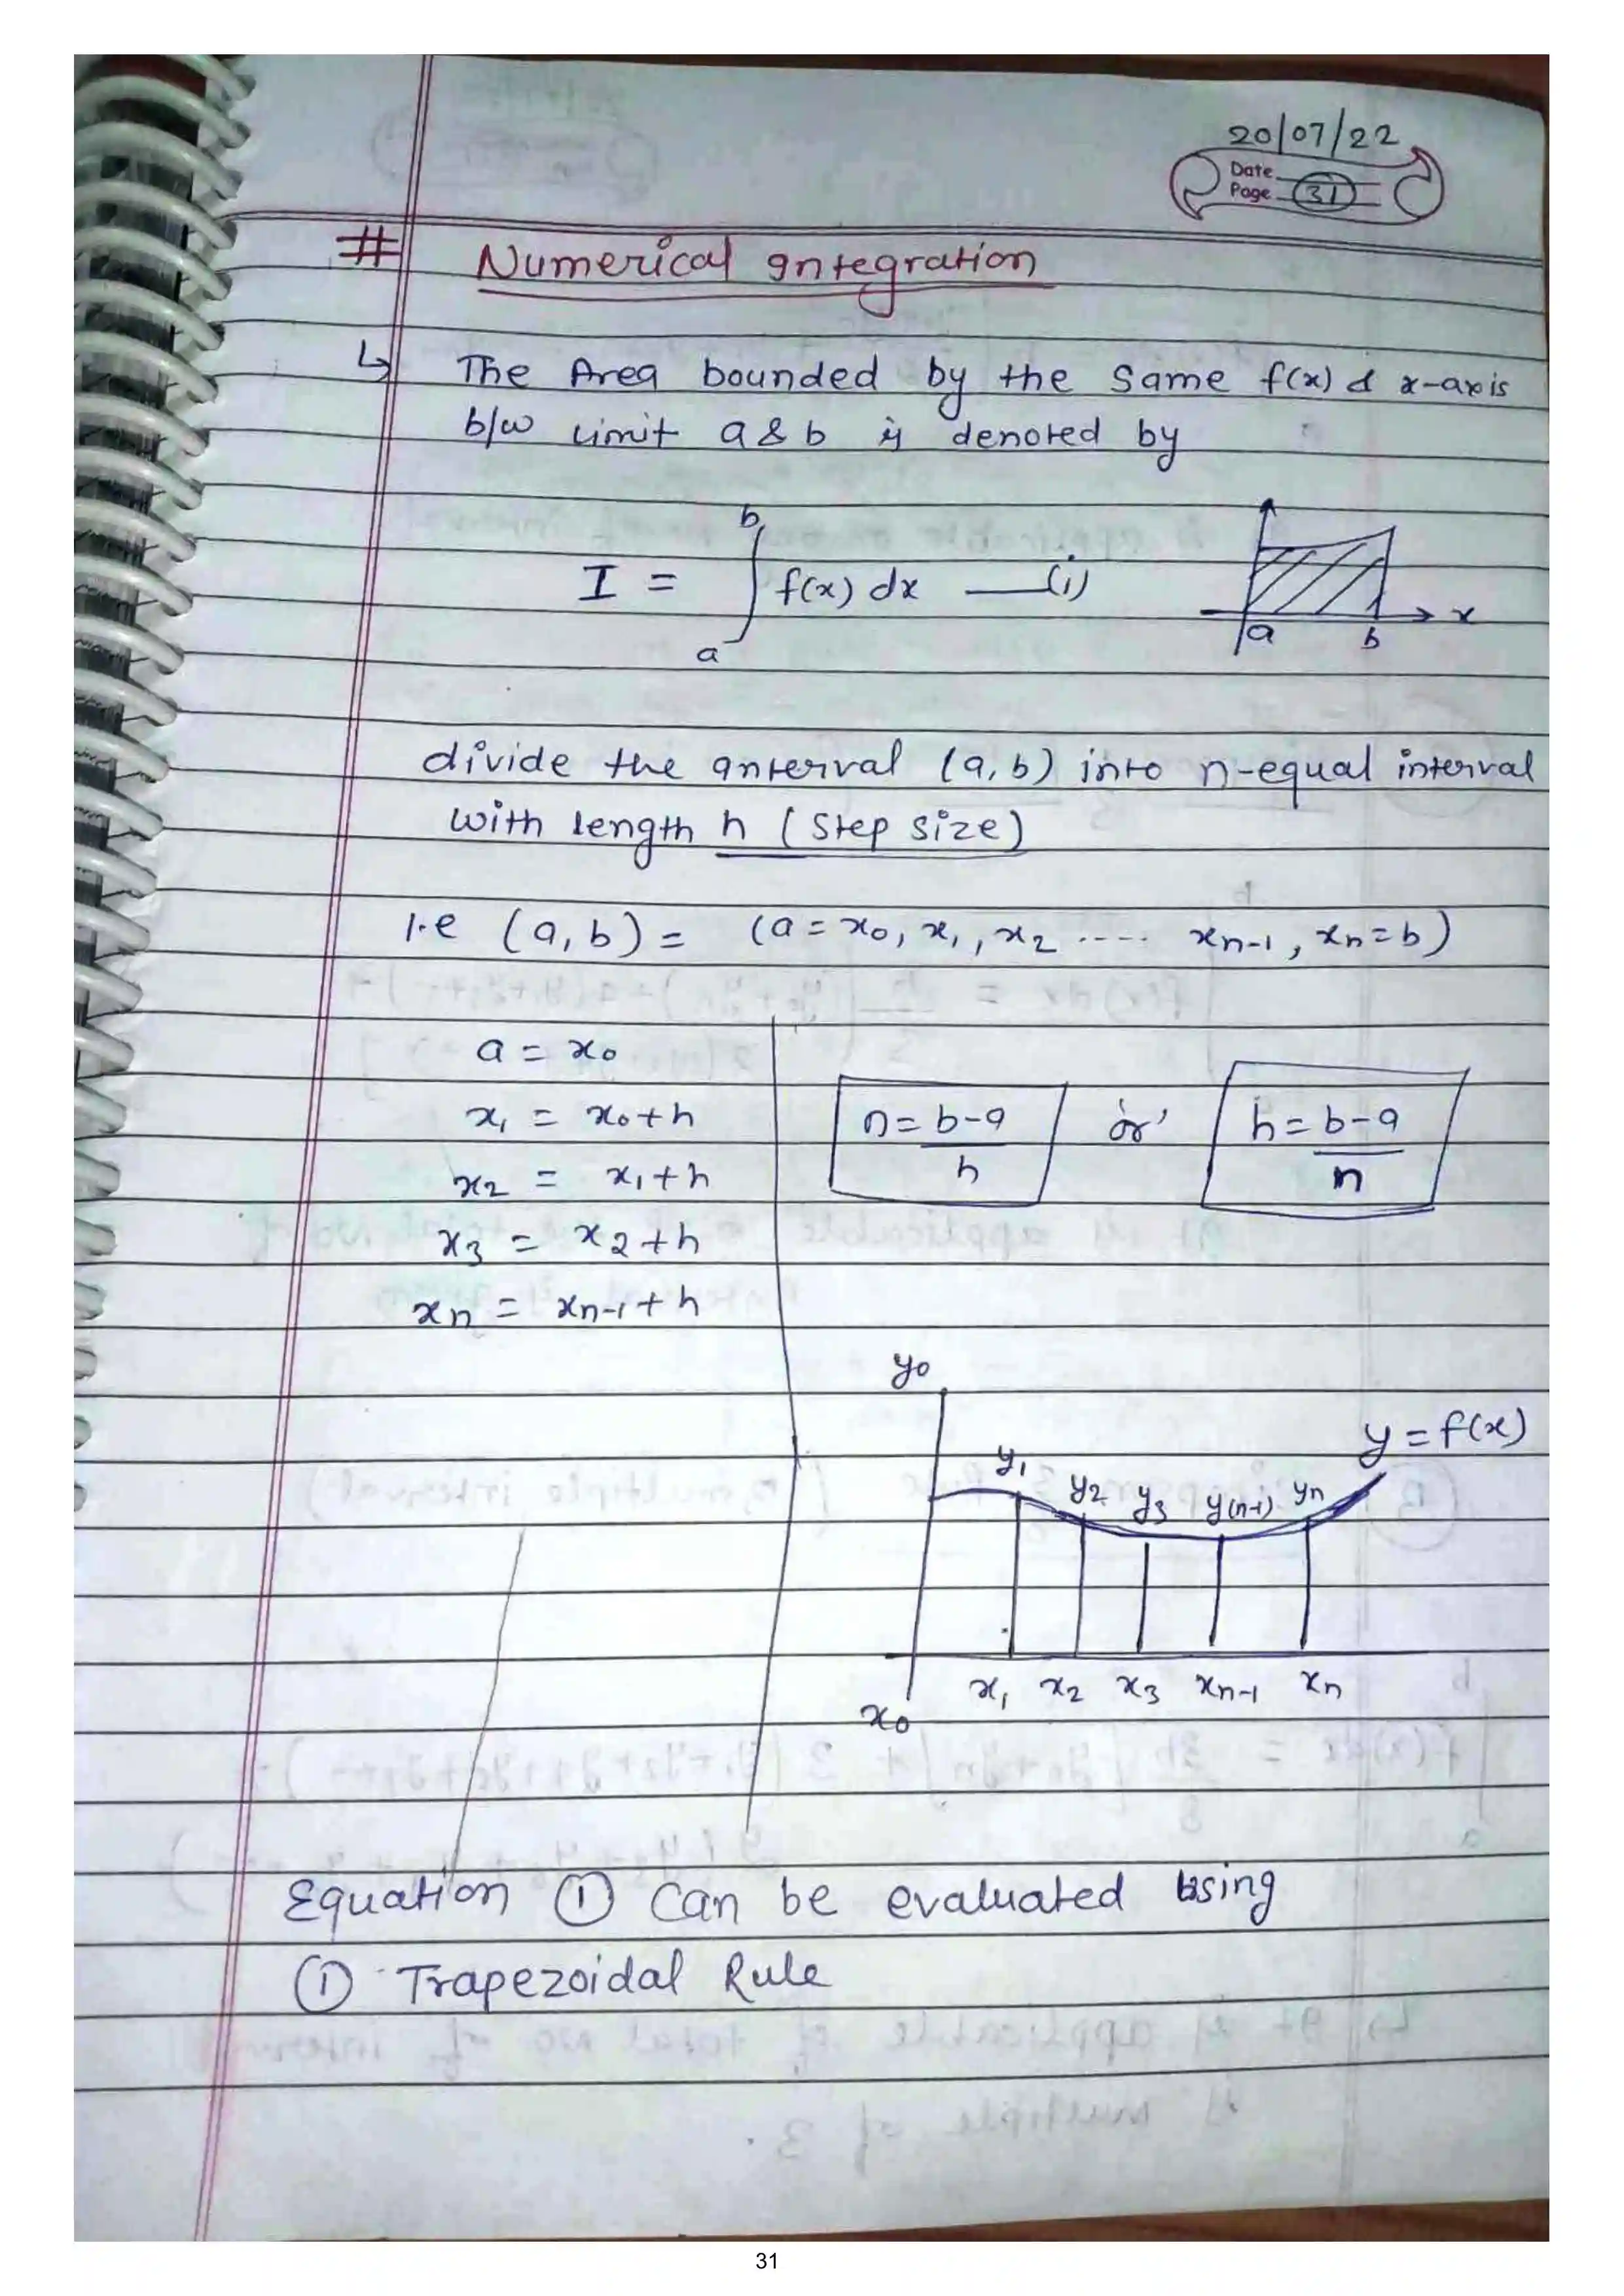 20/07/22
Date
Page 31
# Numerical Integration
↳ The Area bounded by the same f(x) & x-axis
b/w limit a & b is denoted by
I = ∫ₐᵇ f(x) dx —(i)
x
a b
divide the Interval (a, b) into n-equal interval
with length h (Step size)
I.e (a, b) = (a = x₀, x₁, x₂ ----- xₙ₋₁, xₙ = b)
a = x₀
x₁ = x₀ + h
x₂ = x₁ + h
x₃ = x₂ + h
xₙ = xₙ₋₁ + h
n = b-a/h or h = b-a/n
y₀
y = f(x)
y₁ y₂ y₃ y(n-1) yₙ
x₀ x₁ x₂ x₃ xₙ₋₁ xₙ
Equation ① Can be evaluated using
① Trapezoidal Rule
31